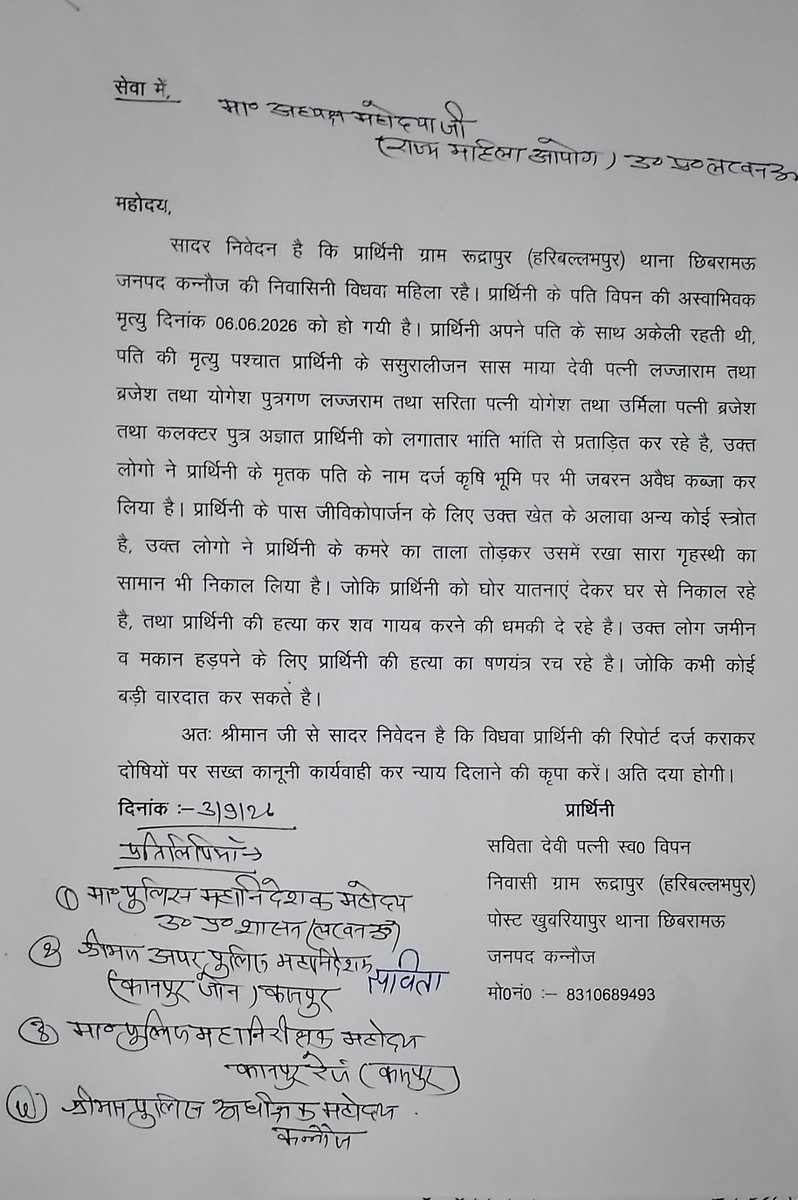 सेवा में,
मा० अध्यक्ष महोदया जी
(राज्य महिला आयोग) उ० प्र० लखनऊ
महोदय,
सादर निवेदन है कि प्रार्थिनी ग्राम रूद्रापुर (हरिबल्लभपुर) थाना छिबरामऊ
जनपद कन्नौज की निवासिनी विधवा महिला रहै। प्रार्थिनी के पति विपन की अस्वाभिवक
मृत्यु दिनांक 06.06.2026 को हो गयी है। प्रार्थिनी अपने पति के साथ अकेली रहती थी,
पति की मृत्यु पश्चात प्रार्थिनी के ससुरालीजन सास माया देवी पत्नी लज्जाराम तथा
ब्रजेश तथा योगेश पुत्रगण लज्जराम तथा सरिता पत्नी योगेश तथा उर्मिला पत्नी ब्रजेश
तथा कलक्टर पुत्र अज्ञात प्रार्थिनी को लगातार भांति भांति से प्रताड़ित कर रहे है, उक्त
लोगो ने प्रार्थिनी के मृतक पति के नाम दर्ज कृषि भूमि पर भी जबरन अवैध कब्जा कर
लिया है। प्रार्थिनी के पास जीविकोपार्जन के लिए उक्त खेत के अलावा अन्य कोई स्त्रोत
है, उक्त लोगो ने प्रार्थिनी के कमरे का ताला तोड़कर उसमें रखा सारा गृहस्थी का
सामान भी निकाल लिया है। जोकि प्रार्थिनी को घोर यातनाएं देकर घर से निकाल रहे
है, तथा प्रार्थिनी की हत्या कर शव गायब करने की धमकी दे रहे है। उक्त लोग जमीन
व मकान हड़पने के लिए प्रार्थिनी की हत्या का षणयंत्र रच रहे है। जोकि कभी कोई
बड़ी वारदात कर सकते है।
अतः श्रीमान जी से सादर निवेदन है कि विधवा प्रार्थिनी की रिपोर्ट दर्ज कराकर
दोषियों पर सख्त कानूनी कार्यवाही कर न्याय दिलाने की कृपा करें। अति दया होगी।
दिनांक :–
प्रार्थिनी
सविता देवी पत्नी स्व0 विपन
निवासी ग्राम रूद्रापुर (हरिबल्लभपुर)
पोस्ट खुवरियापुर थाना छिबरामऊ
जनपद कन्नौज
मो0नं0 :– 8310689493
प्रतिलिपियाँ→
① मा० पुलिस महानिदेशक महोदय
उ० प्र० शासन (लखनऊ)
② श्रीमान अपर पुलिस महानिदेशक
(कानपुर जोन) कानपुर
सविता
③ मा० पुलिस महानिरीक्षक महोदय
कानपुर रेंज (कानपुर)
④ श्रीमान पुलिस अधीक्षक महोदय
कन्नौज